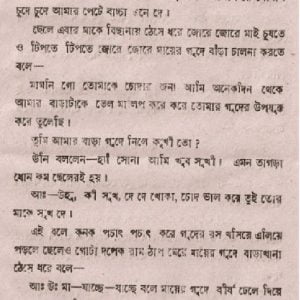 চুদে চুদে আমার পেটে বাচ্চা এনে দে।
ছেলে এবার মাকে বিছানায় ঠেসে ধরে জোরে জোরে মাই চুষতে
ও টিপতে টিপতে জোরে জোরে মায়ের গুদে বাঁড়া চালনা করতে
বলে—
মামনি গো তোমাকে চোদার জন্য আমি অনেকদিন থেকে
আমার বাড়াটাকে তেল মালিশ করে করে তোমার গুদের উপযুক্ত
করে তুলেছি।
তুমি আমার বাড়া গুদে নিলে সুখী তো?
উনি বললেন—হ্যাঁ সোনা আমি খুব সুখী। এমন তাগড়া
ধোনেরই কম হয়েছেন।
আঃ—উহু, কী সুখ, দে দে খোকা, চোদ ভাল করে তুই তোর
মাকে সুখ দে।
এই বলে কনক পচাৎ পচাৎ করে গুদের রস খসিয়ে এলিয়ে
পড়লে ছেলেও গোটা দশেক রাম ঠাপ মেরে মায়ের গুদে বাড়াখানা
ঠেসে ধরে বলে—
আঃ উঃ মা—যাচ্ছে—যাচ্ছে বলে মায়ের গুদে বীর্য ঢেলে দিয়ে